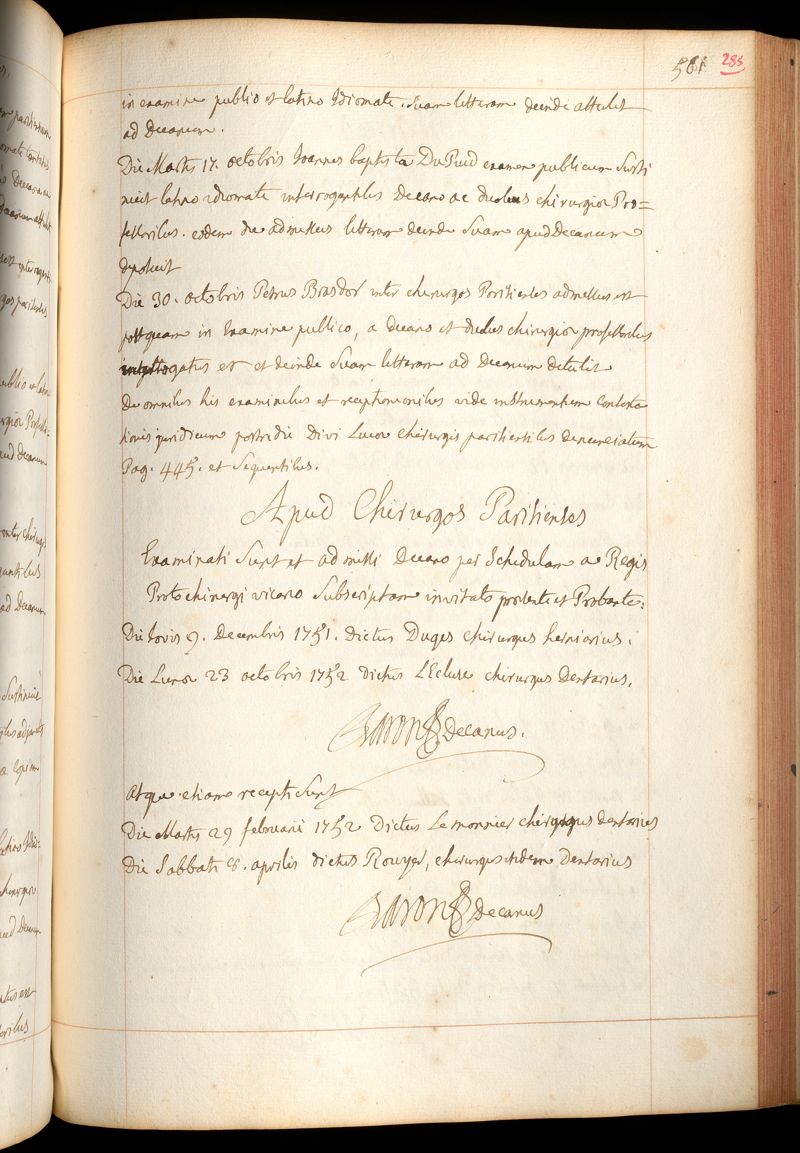 561 285
in examine publico et latino Idiomate. suam litteram deinde attulit
ad Decanum.
Die Martis 17. octobris Joannes baptista DuPuid examen publicum susti
nuit latino idiomate interrogantibus Decano ac duobus chirurgiæ Pro=
fessoribus. eodem die admissus litteram deinde suam apud Decanum
deposuit
Die 30. octobris Petrus Brasdor inter chirurgos Parisienses admissus est
postquam in Examine publico, a decano et duobus chirurgiæ professoribus
interrogatus est et deinde suam litteram ad Decanum detulit
De omnibus his examinibus et receptionibus vide instrumentum contesta
tionis juridicum postridie Divi Lucæ chirurgis parisiensibus denunciatum
Pag. 445. et sequentibus.
Apud Chirurgos Parisienses
Examinati sunt et admissi Decano per schedulam a Regis
Protochirurgi vicario subscriptam invitato præsente et Probante:
Die Jovis 9. Decembris 1751. dictus Dugés chirurgus herniarius.
Die Lunæ 23 octobris 1752 dictus LEcluse chirurgus Dentarius.
Baron Decanus.
atque etiam recepti sunt
Die Martis 29 februarii 1752 Dictus Le monnier chirurgus dentarius
Die Sabbati 8. aprilis dictus Rouyer, chirurgus itidem Dentarius
Baron Decanus